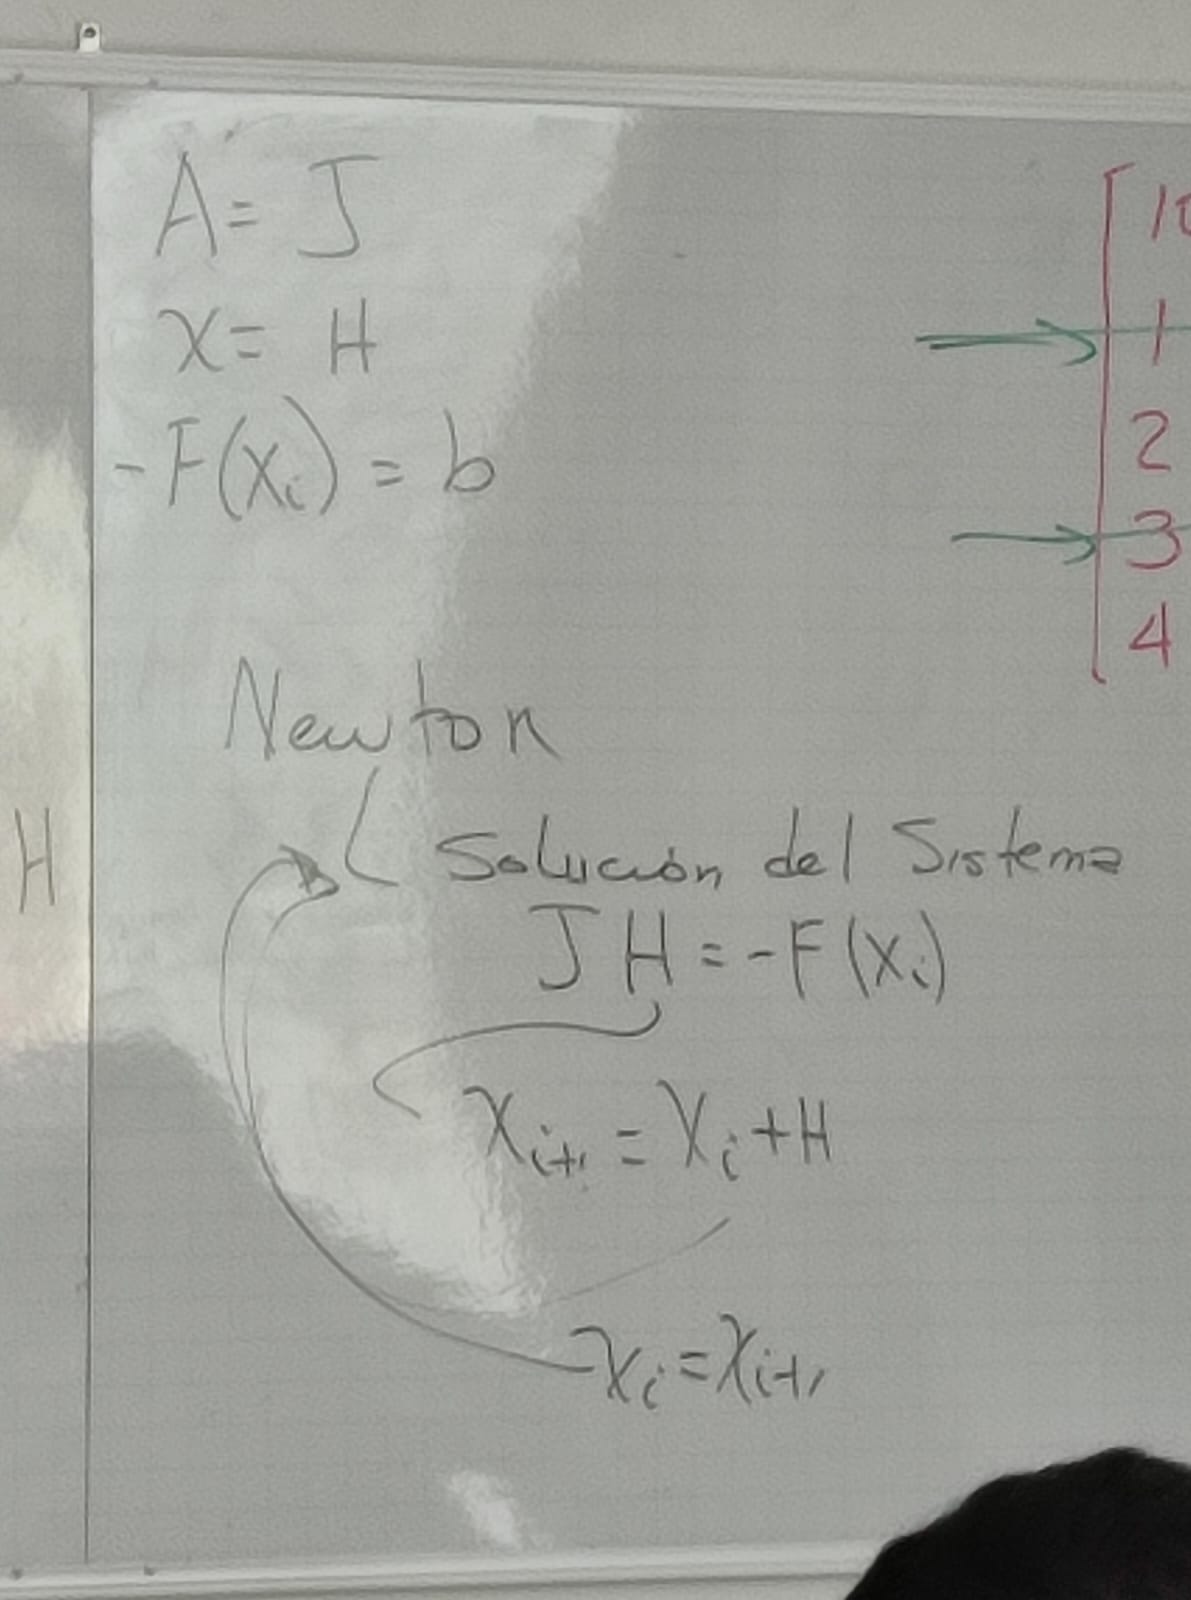 A = J
x = H
-F(xi) = b
Newton
Solución del Sistema
J H = -F(xi)
xi+1 = xi + H
xi = xi+1
H
1
2
3
4